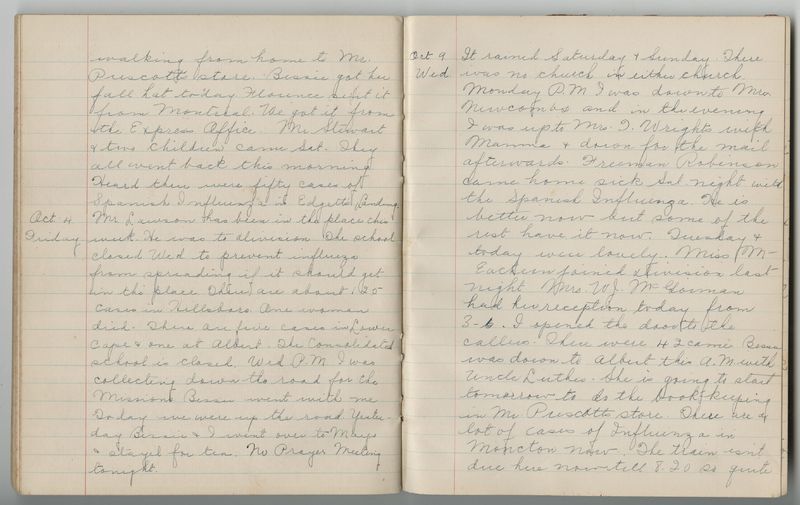 walking from home to Mr.
Prescott's store. Bessie got her
fall hat today Florence sent it
from Montreal. We got it from
the Express Office. Mr. Stewart
& two children came Sat. They
all went back this morning
Heard there were fifty cases of
Spanish Influenza in Edgetts Landing.
Oct. 4 Mr. Lawson has been in the place this
Friday week. He was to division The school
closed Wed to prevent influenza
from spreading if it should get
in the place. There are about 125
cases in Hillsboro. One woman
died. There are five cases in Lower
Cape & one at Albert. The Consolidated
school is closed. Wed P.M. I was
collecting down the road for the
Missions Bessie went with me
Today we were up the road. Yester-
day Bessie & I went over to Mayes
& stayed for tea. No Prayer Meeting
tonight.
Oct 9 It rained Saturday & Sunday. There
Wed was no church in either church.
Monday P.M. I was down to Mrs.
Newcombs and in the evening
I was up to Mrs. I. Wrights with
Mamma & down for the mail
afterwards. Freeman Robinson
came home sick Sat night with
the Spanish Influenza. He is
better now but some of the
rest have it now. Tuesday &
today were lovely. Miss Mc-
Eachern joined division last
night. Mrs. W.J. McGorman
had her reception today from
3-6. I opened the door to the
callers. There were 42 came Bessie
was down to Albert this A.M. with
Uncle Luther. She is going to start
tomorrow to do the book-keeping
in Mr. Prescott's store. There are a
lot of cases of Influenza in
Moncton now. The train isn't
due here now till 8.20 so quite